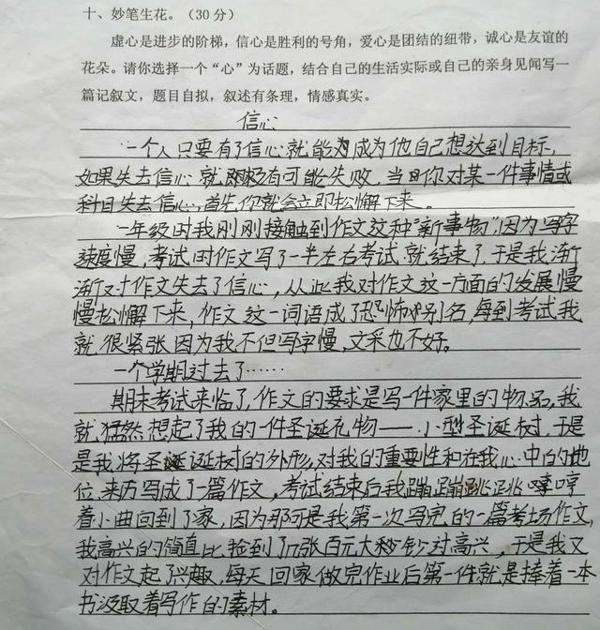 十、妙笔生花。（30分）
虚心是进步的阶梯，信心是胜利的号角，爱心是团结的纽带，诚心是友谊的
花朵。请你选择一个“心”为话题，结合自己的生活实际或自己的亲身见闻写一
篇记叙文，题目自拟，叙述有条理，情感真实。
信心
一个人只要有了信心就能成为他自己想达到目标，
如果失去信心就极有可能失败，当你对某一件事情或
科目失去信心，首先你就会立即松懈下来。
一年级时我刚刚接触到作文这种“新事物”，因为写字
速度慢，考试时作文写了一半左右考试就结束了，于是我渐
渐对作文失去了信心，从此我对作文这一方面的发展慢
慢松懈下来，作文这一词语成了恐怖别名，每到考试我
就很紧张因为我不但写字慢，文采也不好。
一个学期过去了……
期末考试来临了，作文的要求是写一件家里的物品，我
就猛然想起了我的一件圣诞礼物——小型圣诞树，于是
是我将圣诞树的外形，对我的重要性和在我心中的地
位，来历写成了一篇作文，考试结束后我蹦蹦跳跳哼
着小曲回到了家，因为那可是我第一次写完的一篇考场作文，
我高兴的简直比捡到了几张百元大钞对高兴，于是我又
对作文起了兴趣，每天回家做完作业后第一件就是捧着一本
书汲取着写作的素材。